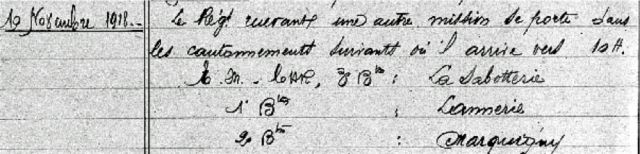 10 Novembre 1918._ Le Régt recevant une autre mission se porte dans
les cantonnements suivants où il arrive vers 10H.
E.M. - CHR, 3e Bon : La Sabotterie
1er Bon : Lannerie
2e Bon : Marquigny